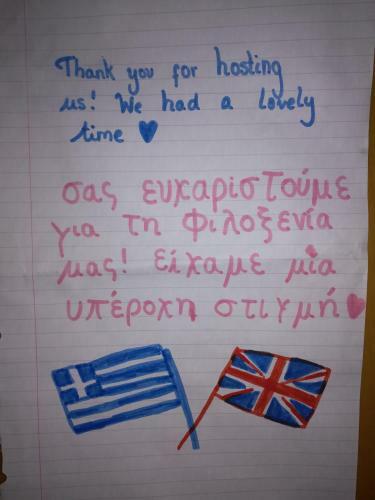 Thank you for hosting
us! We had a lovely
time ♥
σας ευχαριστούμε
για τη φιλοξενία
μας! είχαμε μία
υπέροχη στιγμή ♥